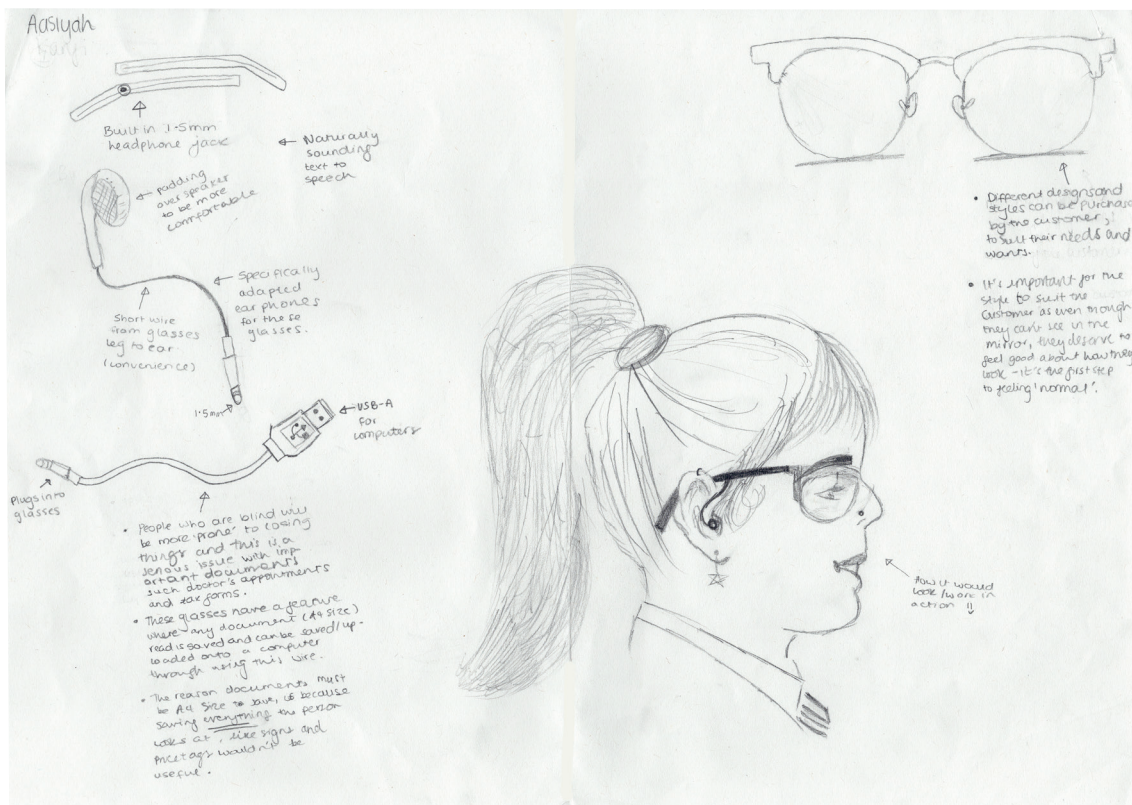 Aasiyah
Built in 1.5mm
headphone jack
Naturally
sounding
text to
speech
padding
over speaker
to be more
comfortable
Specifically
adapted
earphones
for these
glasses.
Short wire
from glasses
leg to ear.
(convenience)
1.5mm
USB-A
for
computers
Plugs into
glasses
• People who are blind will
be more 'prone' to losing
things and this is a
serious issue with imp-
ortant documents
such doctor's appointments
and tax forms.
• These glasses have a feature
where any document (A4 size)
read is saved and can be saved/up-
loaded onto a computer
through using this wire.
• The reason documents must
be A4 size to save, is because
saving everything the person
looks at, like signs and
pricetags wouldn't be
useful.
• Different designs and
styles can be purchase
by the customer,
to suit their needs and
wants.
• It's important for the
style to suit the
customer as even though
they can't see in the
mirror, they deserve to
feel good about how they
look - it's the first step
to feeling 'normal'.
How it would
look/work in
action